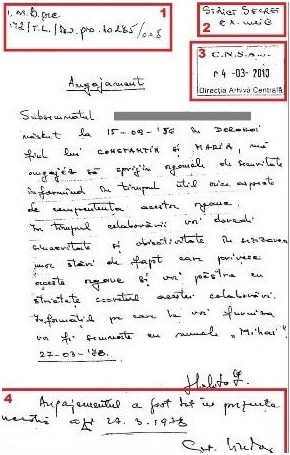 I.M.B. pre
172/T.L./Dev.pro.10285/008
1
STRICT SECRET
ex. unic
2
3
C.N.S.A.S.
4 -03- 2010
Direcția Arhivă Centrală
Angajament
Subsemnatul
născut la 15-09-'56 în DOROHOI
fiul lui CONSTANTIN și MARIA, mă
angajez să sprijin organele de securitate
informând în timpul util orice aspecte
de competența acestor organe.
În timpul colaborării voi dovedi
sinceritate și obiectivitate în sesizarea
unor stări de fapt care privesc
aceste organe și voi păstra cu
strictețe secretul acestei colaborări.
Informațiile pe care le voi furniza
voi fi semnate cu numele „Mihai”
27-03-'78.
4
Angajamentul a fost dat în prezența
27.3.1978